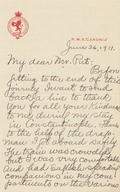 R.M.S. "CARONIA"
June 26, 1911.
My dear Mr. Pet: Before
getting to the end of this
journey I want to send
back a line to thank you
for all your kindness
to me during my stay
in Constantinople. Thanks
to the help of the drago-
man I got aboard safely.
The train was crowded
but I was very comfortable
and had English speaking
companions in my com-
partment on the various